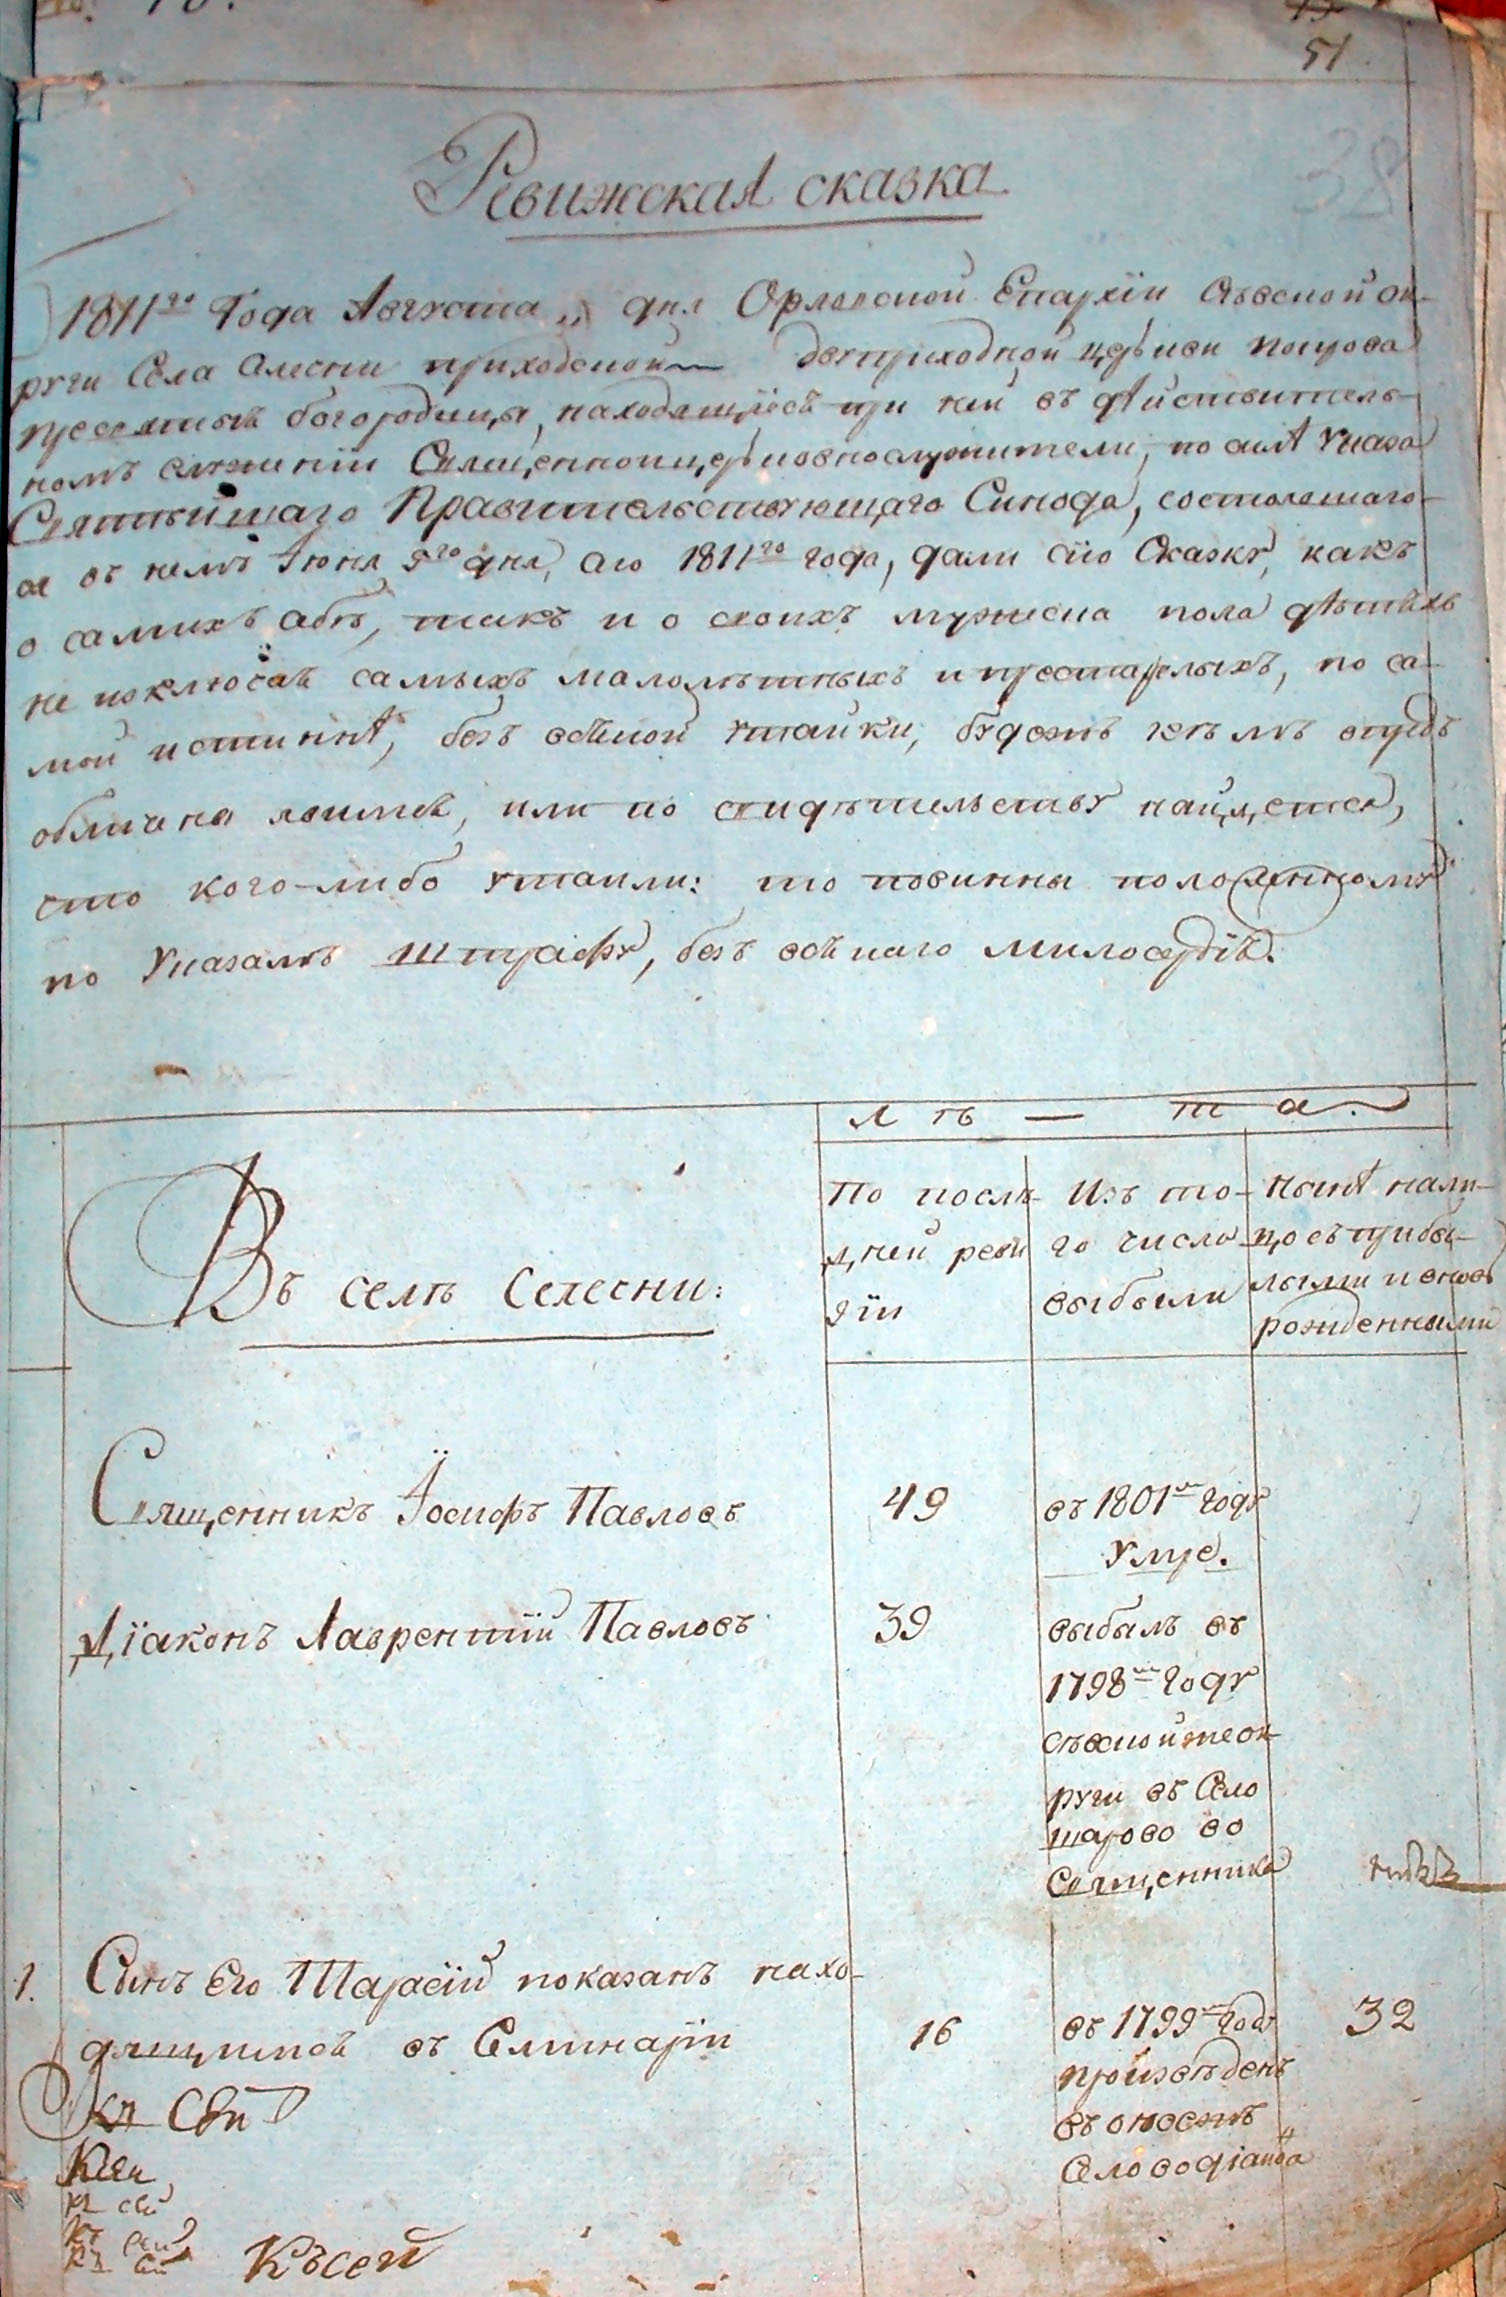 51
38
Ревижская сказка
1811го Года Августа „ дня Орловской Епархіи Сѣвской ок-
руги Села Селесни приходской двуприходной церькви покрова
пресвятыя богородицы, находящіеся при ней въ дѣйствитель-
номъ служеніи Священноицерьковнослужители, по силѣ Указа
Святѣйшаго Правительствующаго Синода, состоявшаго-
ся въ немъ Іюня 5го дня, сего 1811го года, дали сію Сказку, какъ
о самихъ себѣ, такъ и о своихъ мужеска пола дѣтяхъ
не исключая самыхъ малолѣтныхъ и престарѣлыхъ, по са-
мой истиннѣ, безъ всякой утайки, будежъ кѣмъ впредь
обличены явимся, или по свидѣтельству найдется,
что кого-либо утаили: то повинны положенному
по Указамъ штрафу, безъ всякаго милосердія.
лѣ — та
Въ селѣ Селесни:
По послѣ-
дней реви
зіи
Изъ то-
го числа
выбыли
Нынѣ нали-
цо съ прибы-
лыми и вновь
рожденными
Священникъ Іосифъ Павловъ
49
въ 1801м году
умре.
Діаконъ Лаврентій Павловъ
39
выбылъ въ
1798м году
сѣвской же ок-
руги въ Село
шарово во
Священника
1. Сынъ Его Тарасій показанъ нахо-
дящимся въ Семинаріи
16
въ 1799м году
произведенъ
въ оноежъ
Село во діакона
32
Къ сей
Къ сей
Къ сей
Къ сей
Къ сей
Късей